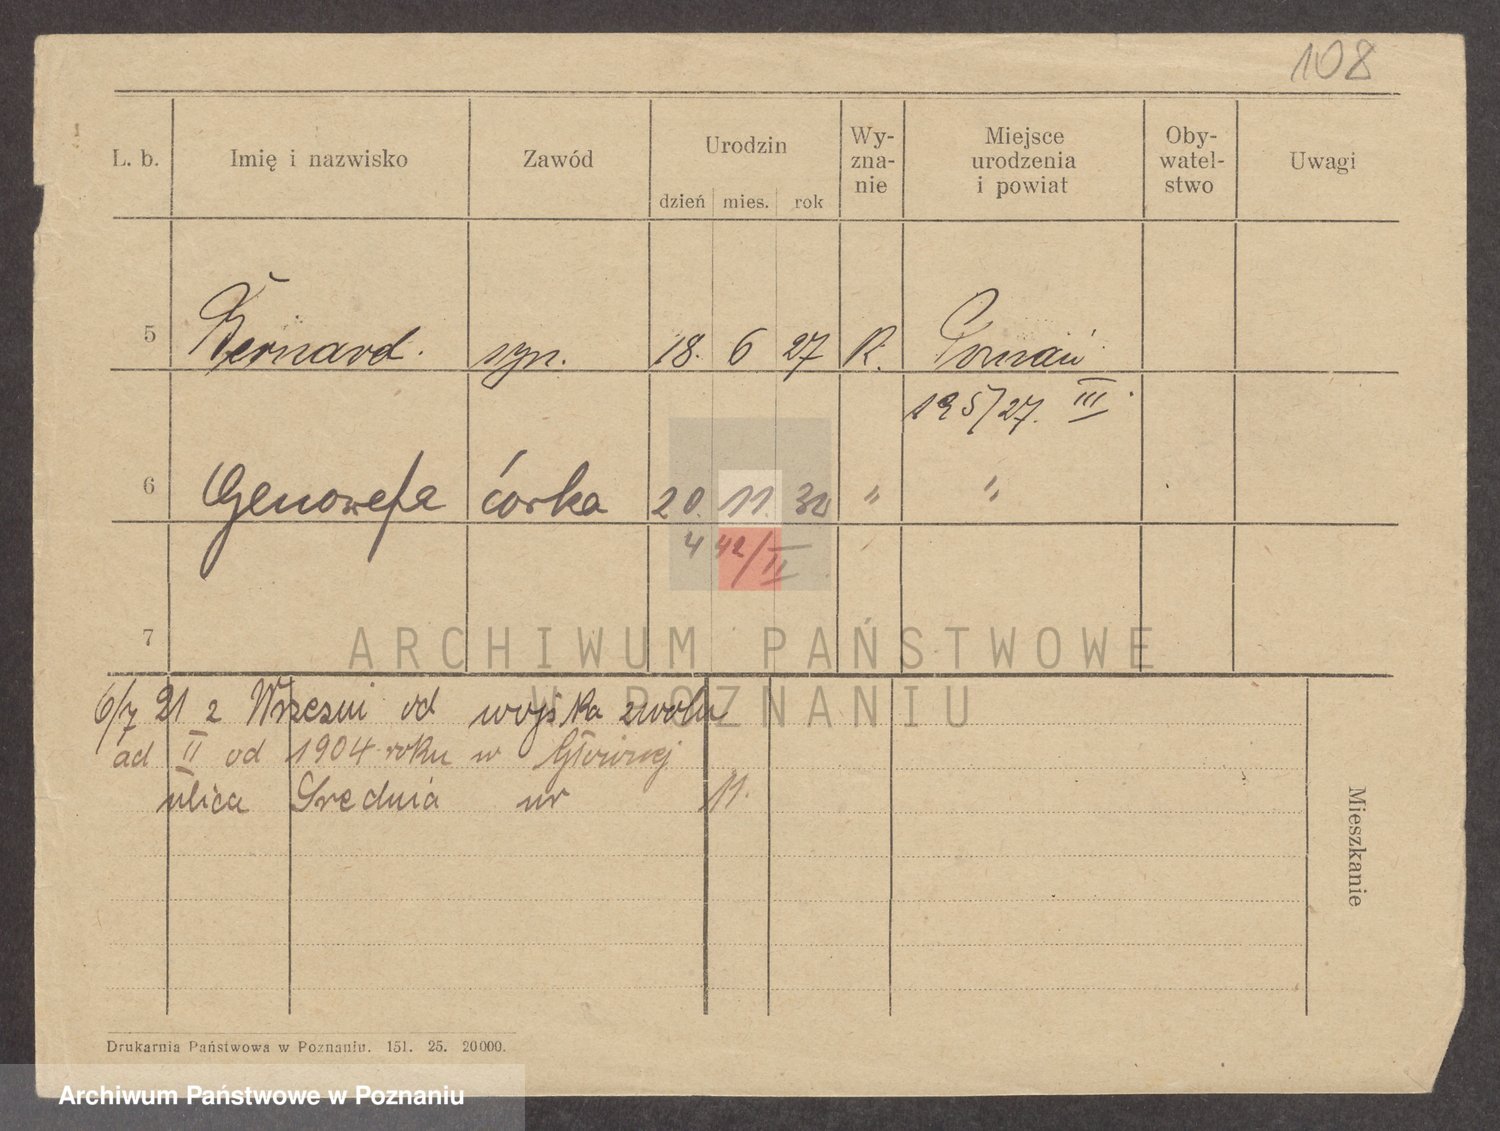 108
L. b. Imię i nazwisko Zawód Urodzin Wy- Miejsce Oby- Uwagi
zna- urodzenia watel-
nie i powiat stwo
dzień mies. rok
5 Bernard. syn. 18. 6 27 R. Poznań
195/27. III.
6 Genowefa córka 20. 11. 30 " "
442/II
7
ARCHIWUM PAŃSTWOWE
W POZNANIU
6/7 21 z Wrześni od wojska zwoln
ad II od 1904 roku w Głównej
ulica Srednia nr 11.
Mieszkanie
Drukarnia Państwowa w Poznaniu. 151. 25. 20000.
Archiwum Państwowe w Poznaniu